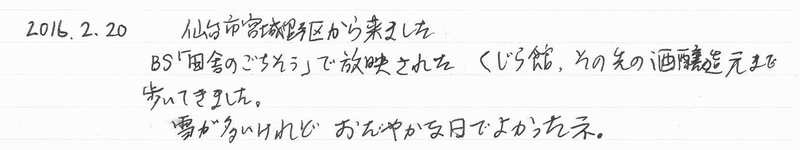 2016.2.20 仙台市宮城野区から来ました
BS「田舎のごちそう」で放映された くじら館、その先の酒醸造元まで
歩いてきました。
雪が多いけれど おだやかな日でよかったネ。